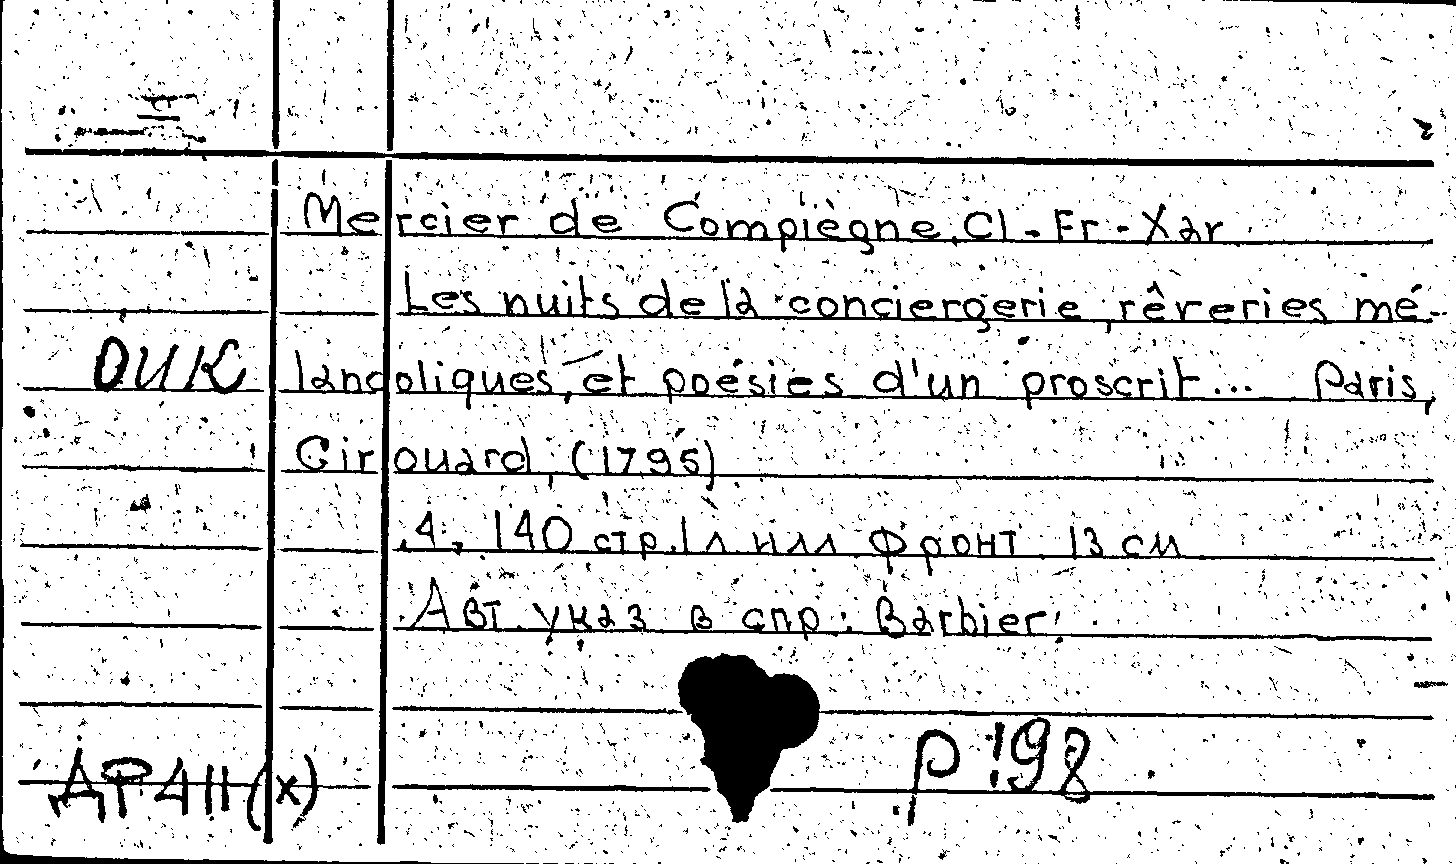 Mercier de Compiègne, Cl-Fr-Xar
Les nuits de la conciergerie, rêveries mé-
ОИК
lancoliques, et poésies d'un proscrit... Paris,
Girouard, (1795)
4, 140 стр. 1 л илл фронт 13 см
Авт. указ в спр: Barbier.
р 198
ДР 411(x)